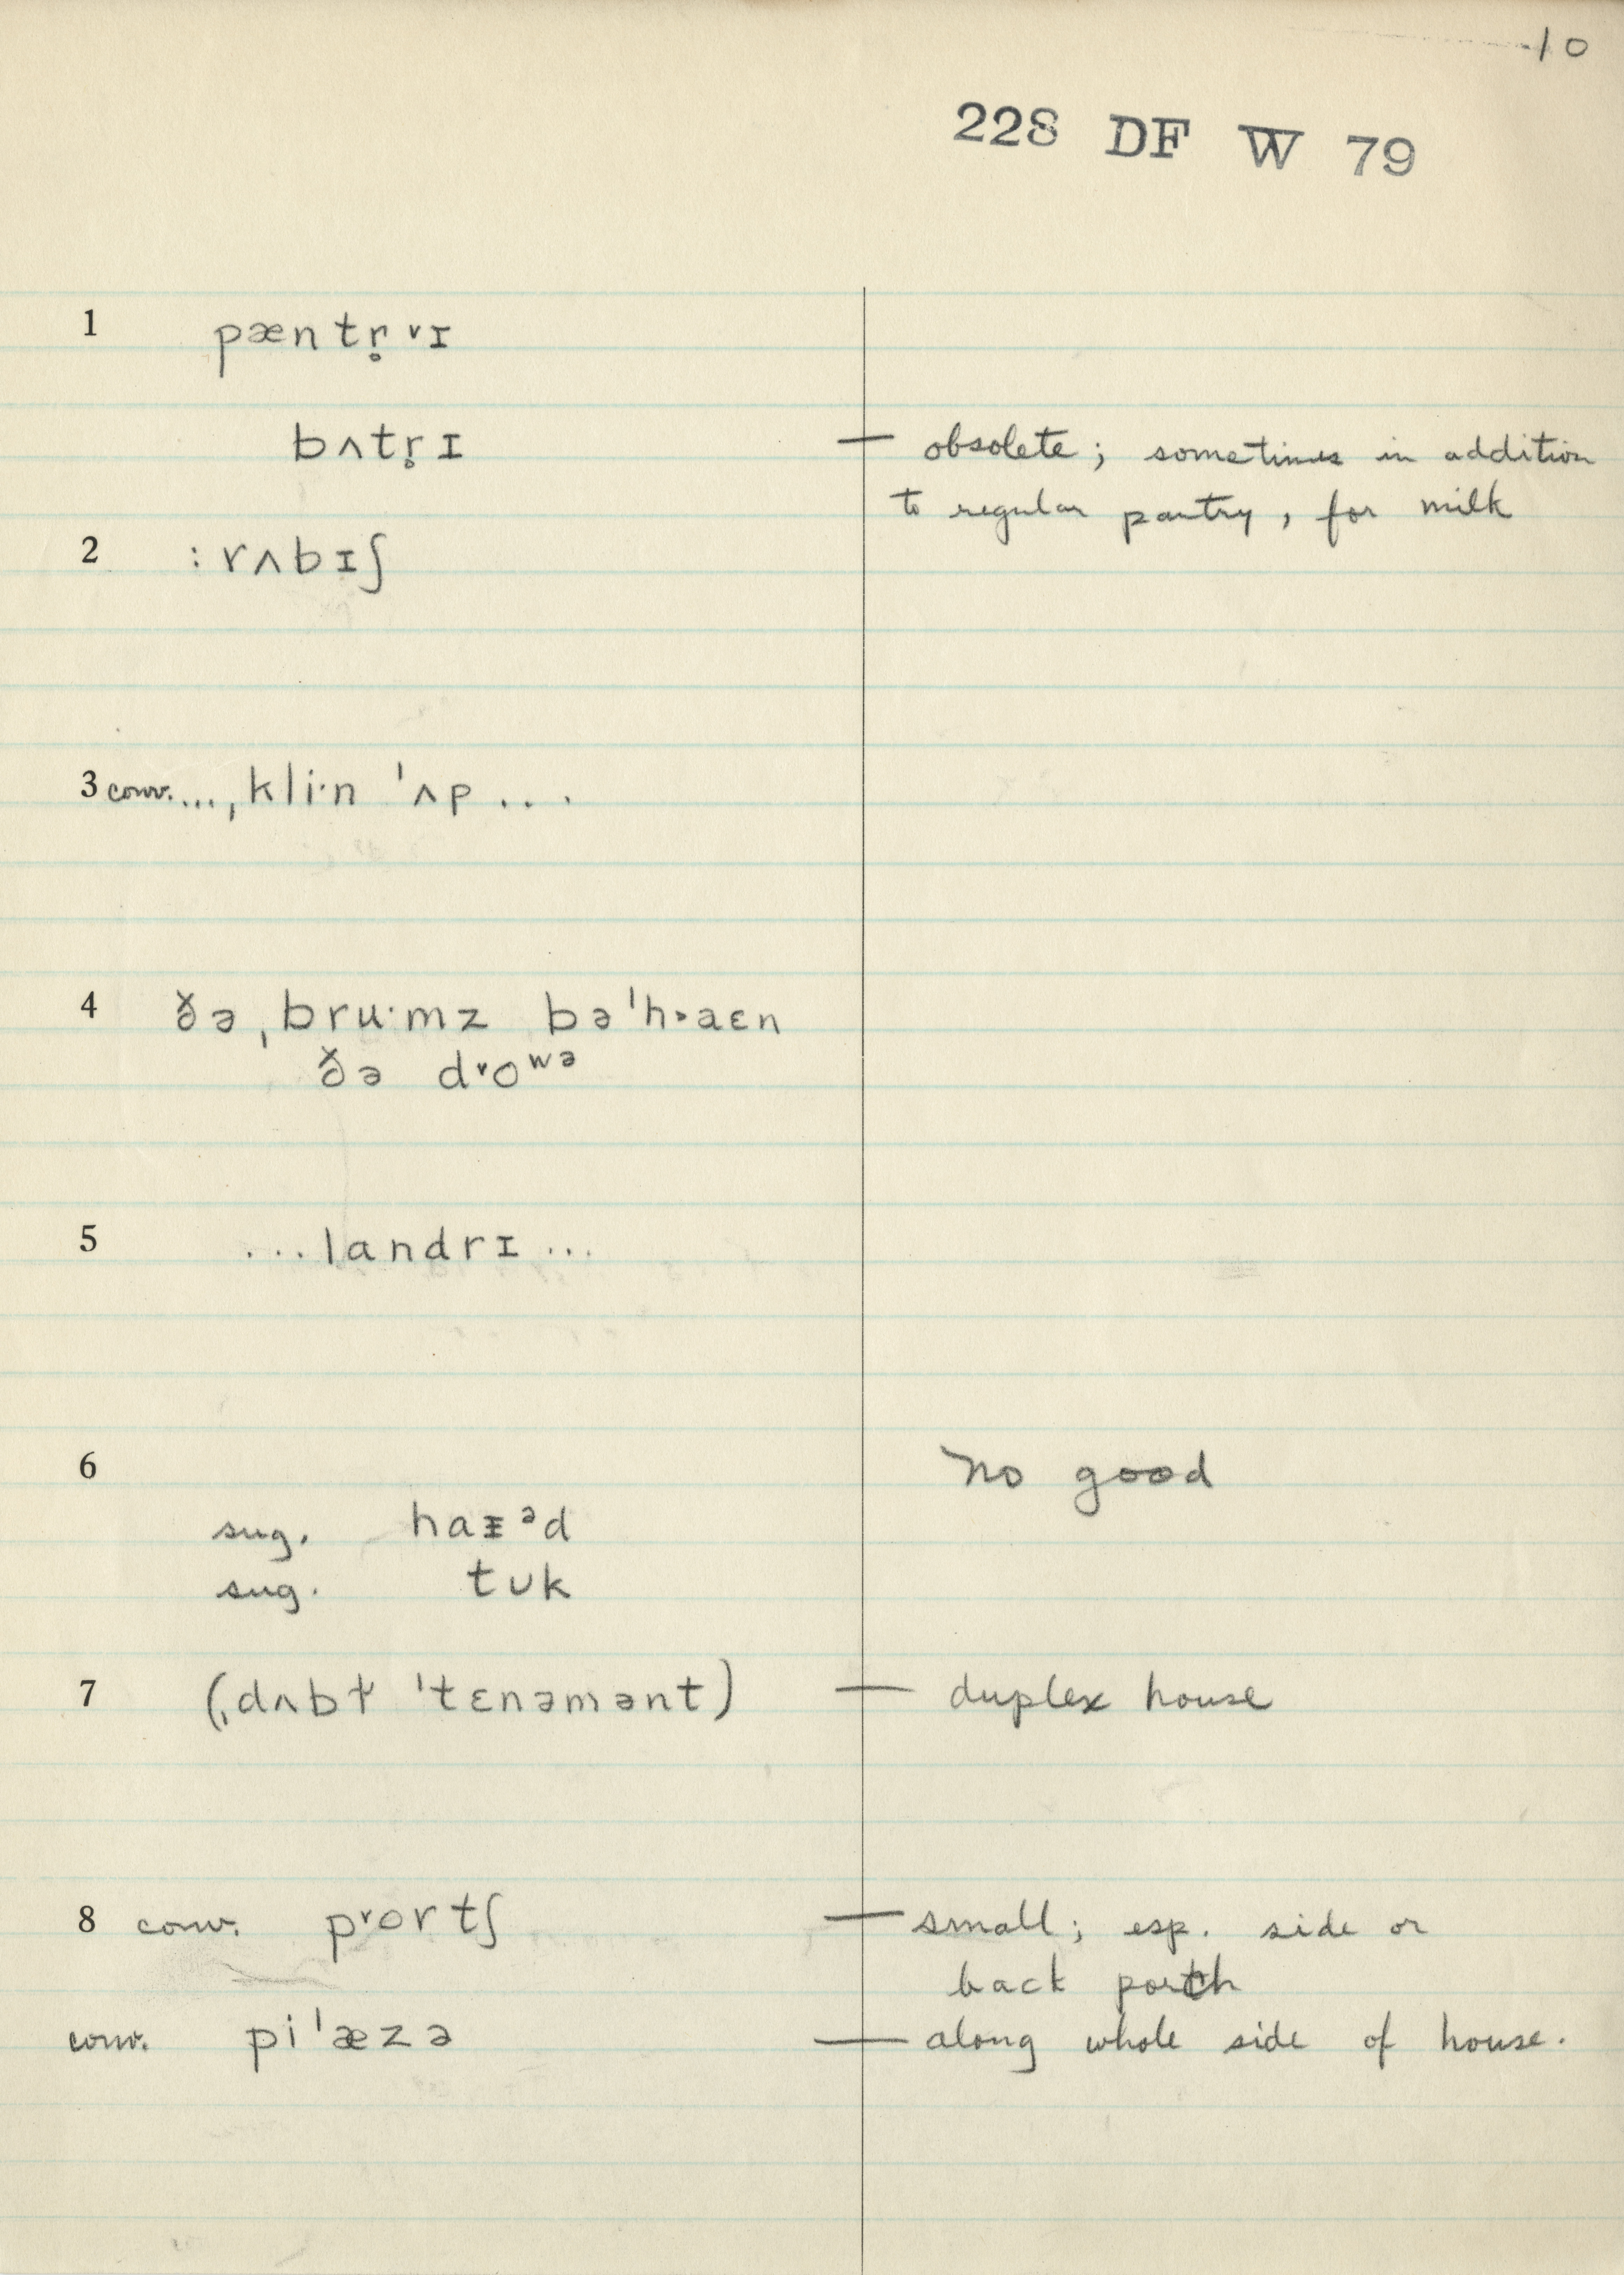 10
228 DF W 79
1 pæntr̥ ˅ɪ
bʌtr̥ɪ — obsolete; sometimes in addition
to regular pantry, for milk
2 :rʌbɪʃ
3 conv. ...ˌkli·n ˈʌp...
4 ðə ˌbru·mz bəˈh˃aɛn
ðə d˅oʷᵊ
5 ...landrɪ...
6 no good
sug. haᵻᵊd
sug. tᴜk
7 (ˌdʌbɫ ˈtɛnəmənt) — duplex house
8 conv. p˅ortʃ — small; esp. side or
back porch
conv. piˈæzə — along whole side of house.